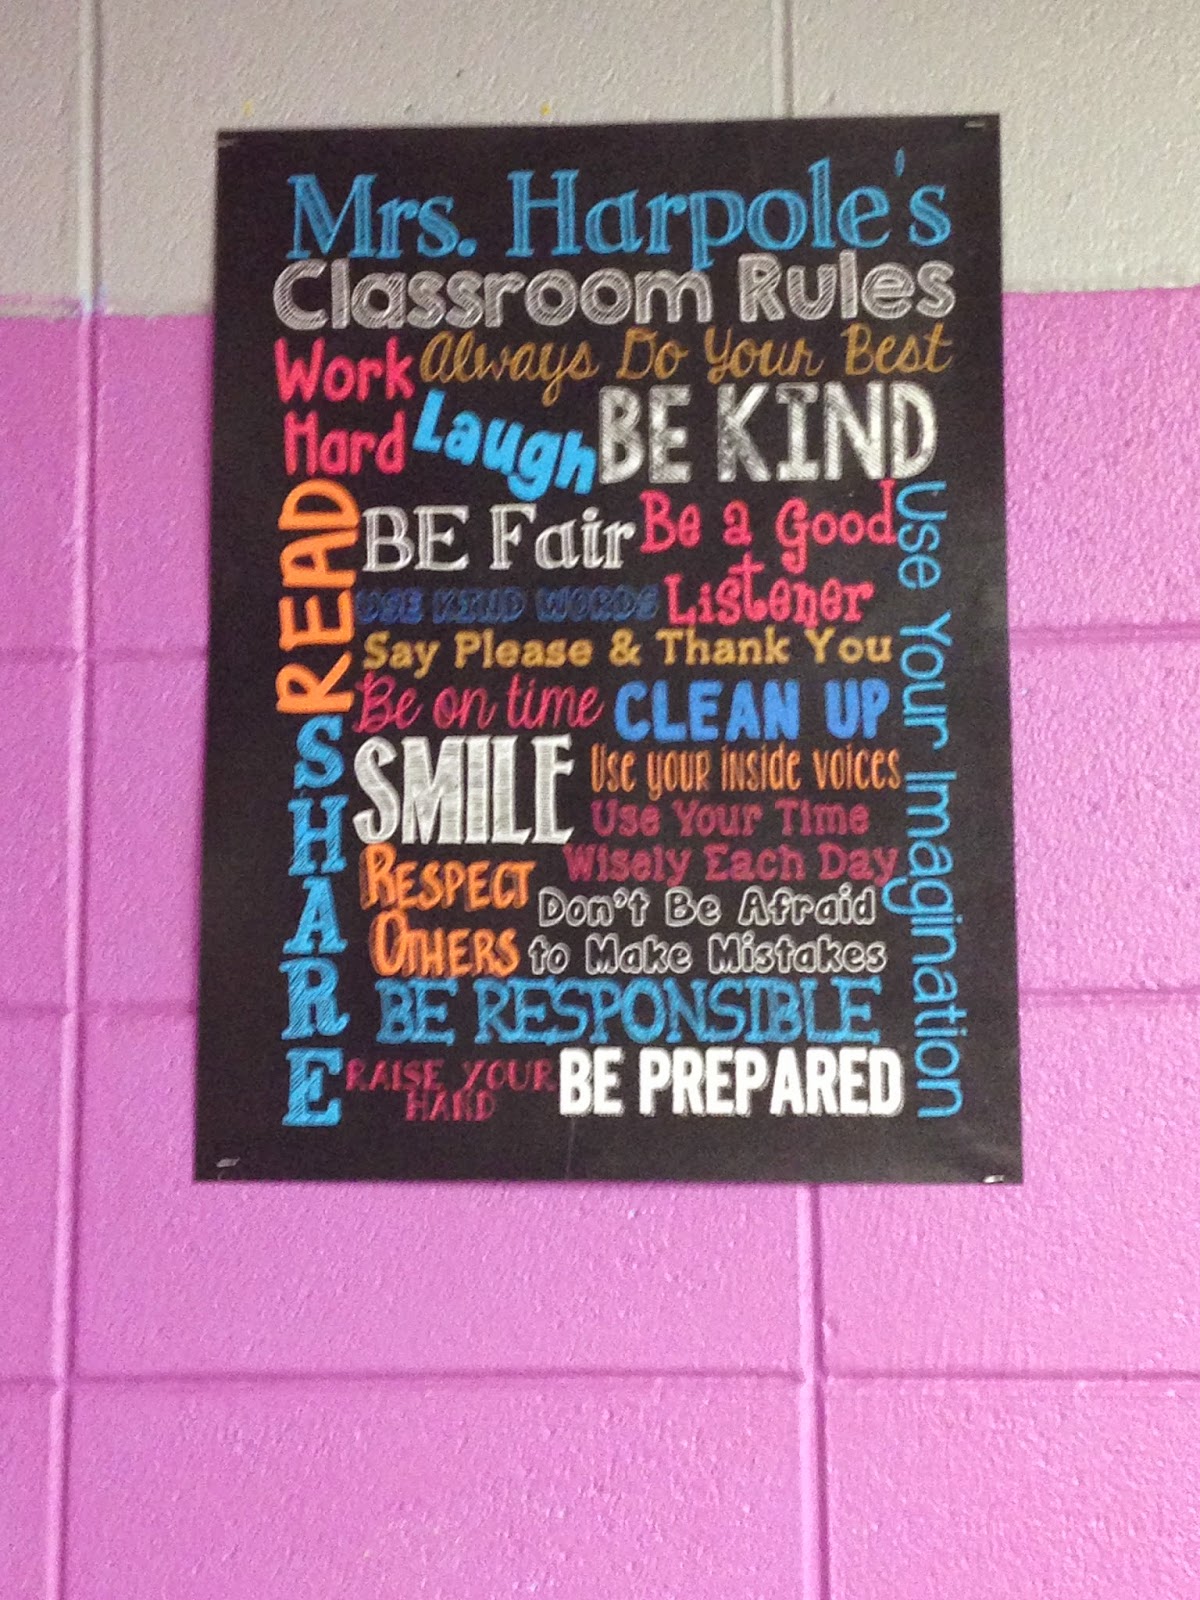 Mrs. Harpole's
Classroom Rules
Work
Hard
Always Do Your Best
Laugh
BE KIND
READ
BE Fair
Be a Good
Listener
USE KIND WORDS
Say Please & Thank You
Be on time
CLEAN UP
Use Your Imagination
SHARE
SMILE
Use your inside voices
Use Your Time
Wisely Each Day
RESPECT
OTHERS
Don't Be Afraid
to Make Mistakes
BE RESPONSIBLE
RAISE YOUR
HAND
BE PREPARED